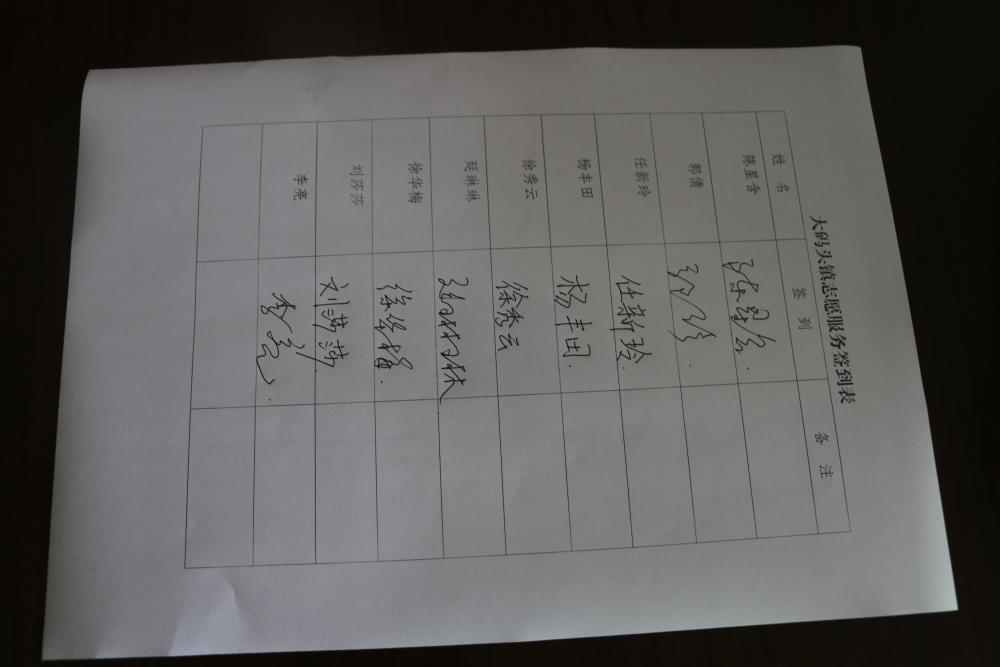 大码头镇志愿服务签到表
姓 名 签 到 备 注
陈星含 陈星含
郭倩
任新玲 任新玲
杨丰田 杨丰田
徐秀云 徐秀云
延琳琳 延琳琳
徐华梅 徐华梅
刘莎莎 刘莎莎
李亮 李亮